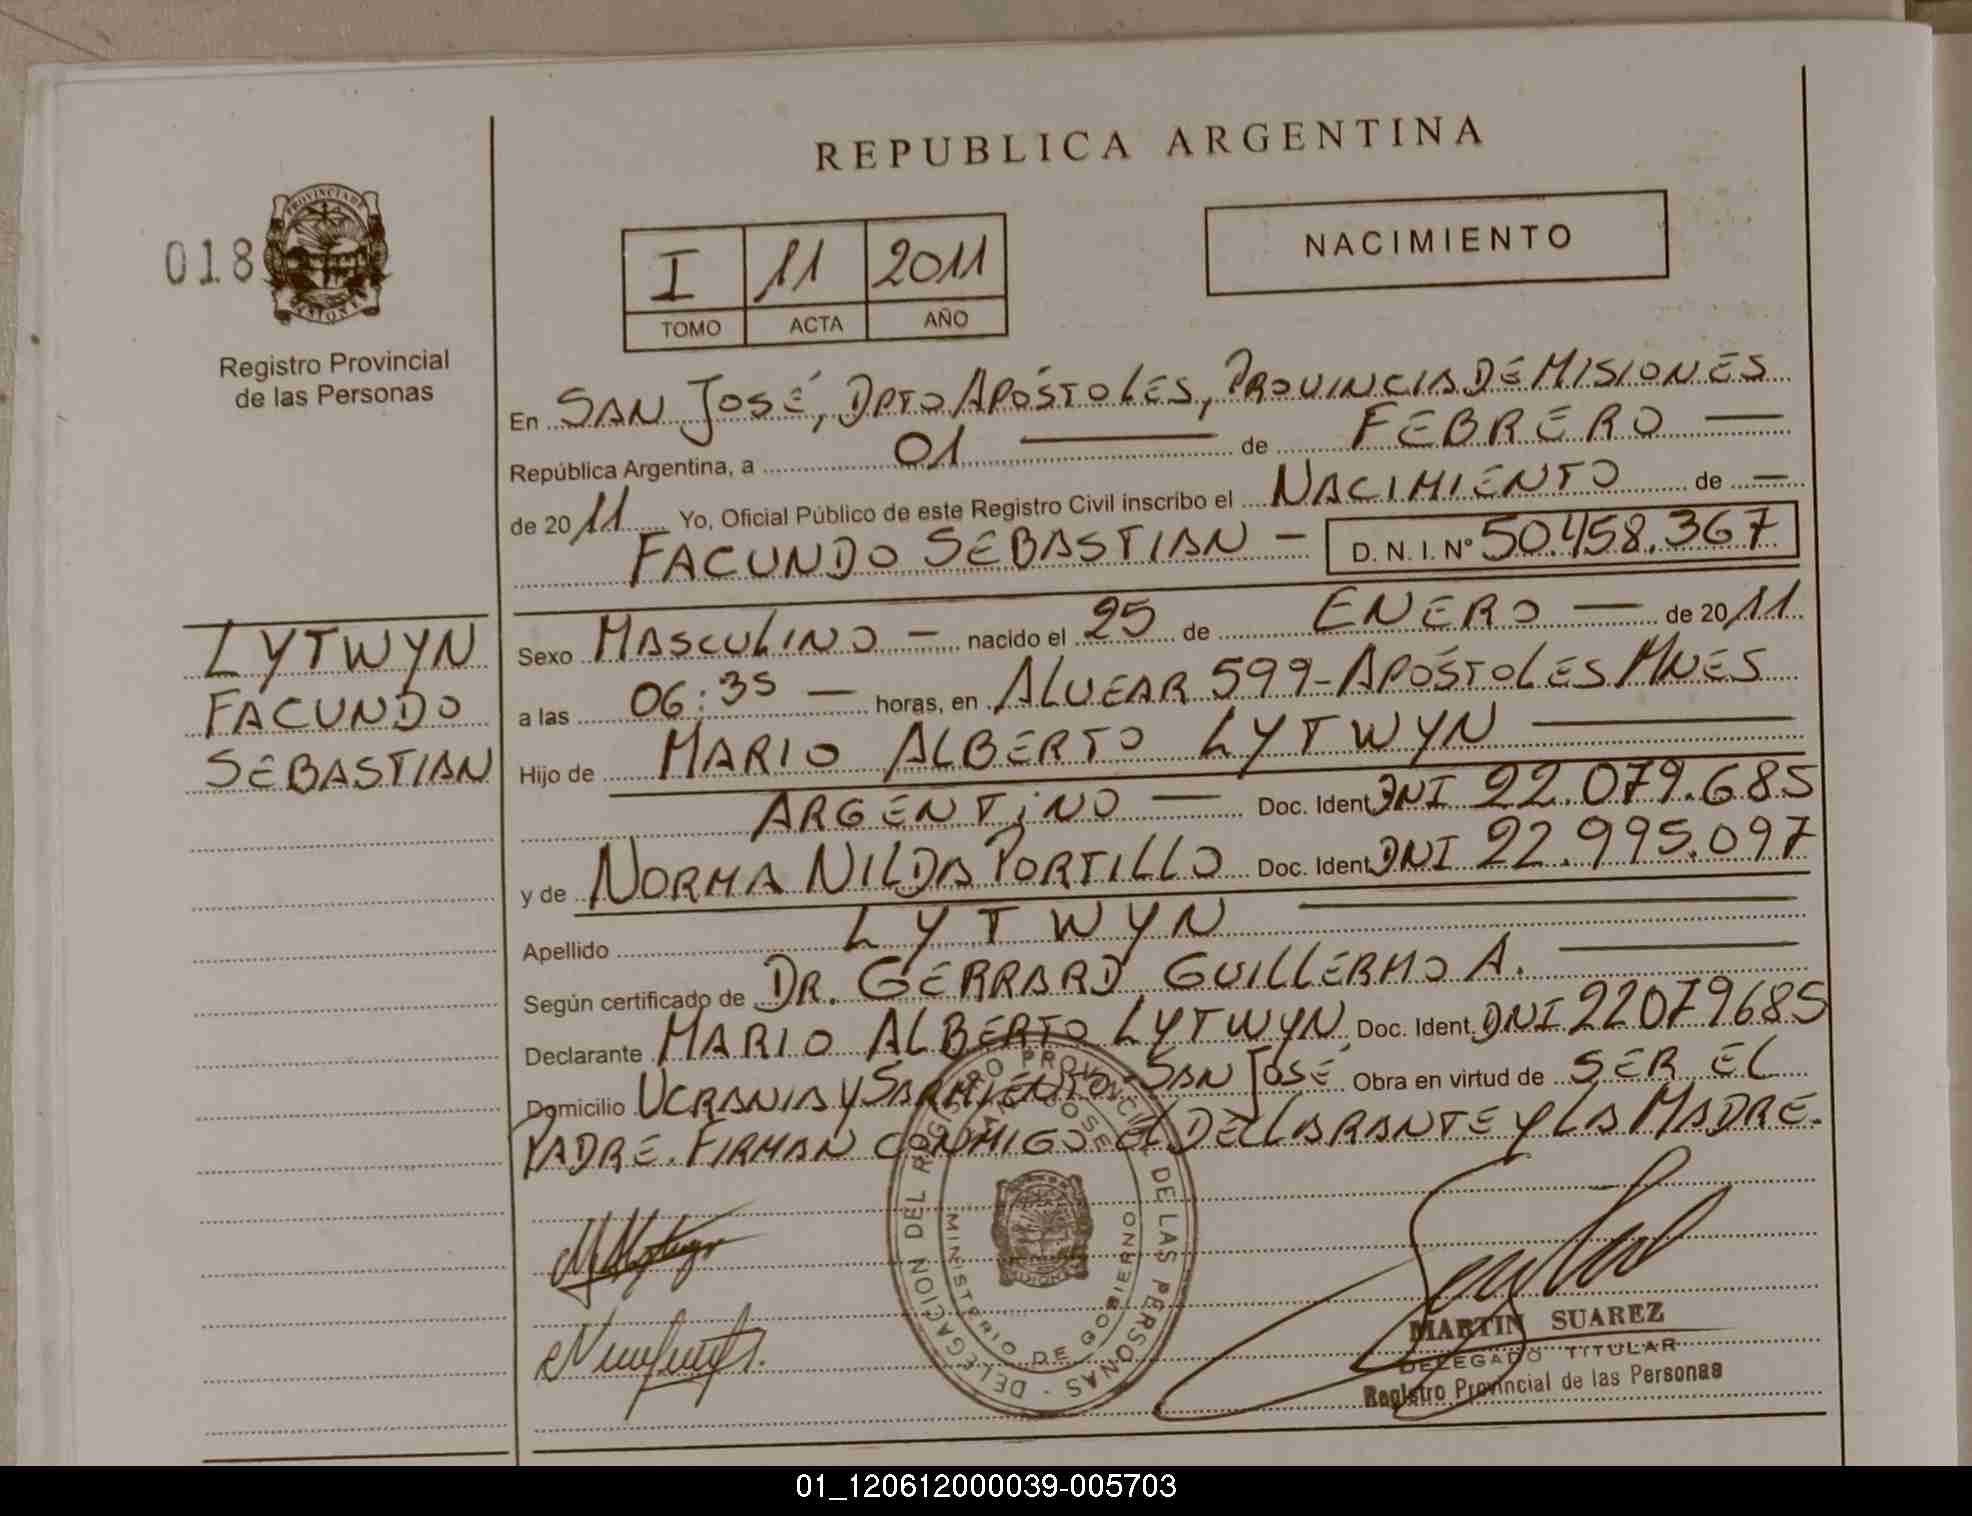 REPUBLICA ARGENTINA
018
PROVINCIA DE MISIONES
Registro Provincial
de las Personas
I 11 2011
TOMO ACTA AÑO
NACIMIENTO
En SAN JOSÉ, DPTO APÓSTOLES, PROVINCIA DE MISIONES
República Argentina, a 01 — de FEBRERO —
de 2011 Yo, Oficial Público de este Registro Civil inscribo el NACIMIENTO de —
FACUNDO SEBASTIAN — D.N.I. Nº 50.458.367
LYTWYN
FACUNDO
SEBASTIAN
Sexo MASCULINO — nacido el 25 de ENERO — de 2011
a las 06:35 — horas, en ALVEAR 599-APÓSTOLES MNES
Hijo de MARIO ALBERTO LYTWYN —
ARGENTINO — Doc. Ident DNI 22.079.685
y de NORMA NILDA PORTILLO Doc. Ident DNI 22.995.097
Apellido LYTWYN —
Según certificado de DR. GERRARD GUILLERMO A. —
Declarante MARIO ALBERTO LYTWYN Doc. Ident. DNI 22079685
Domicilio UCRANIA Y SARMIENTO-SAN JOSÉ Obra en virtud de SER EL
PADRE. FIRMAN CONMIGO EL DECLARANTE Y LA MADRE.
DELEGACION DEL REGISTRO PROVINCIAL DE LAS PERSONAS -
SAN JOSE
MINISTERIO DE GOBIERNO
MARTIN SUAREZ
DELEGADO TITULAR
Registro Provincial de las Personas
01_120612000039-005703